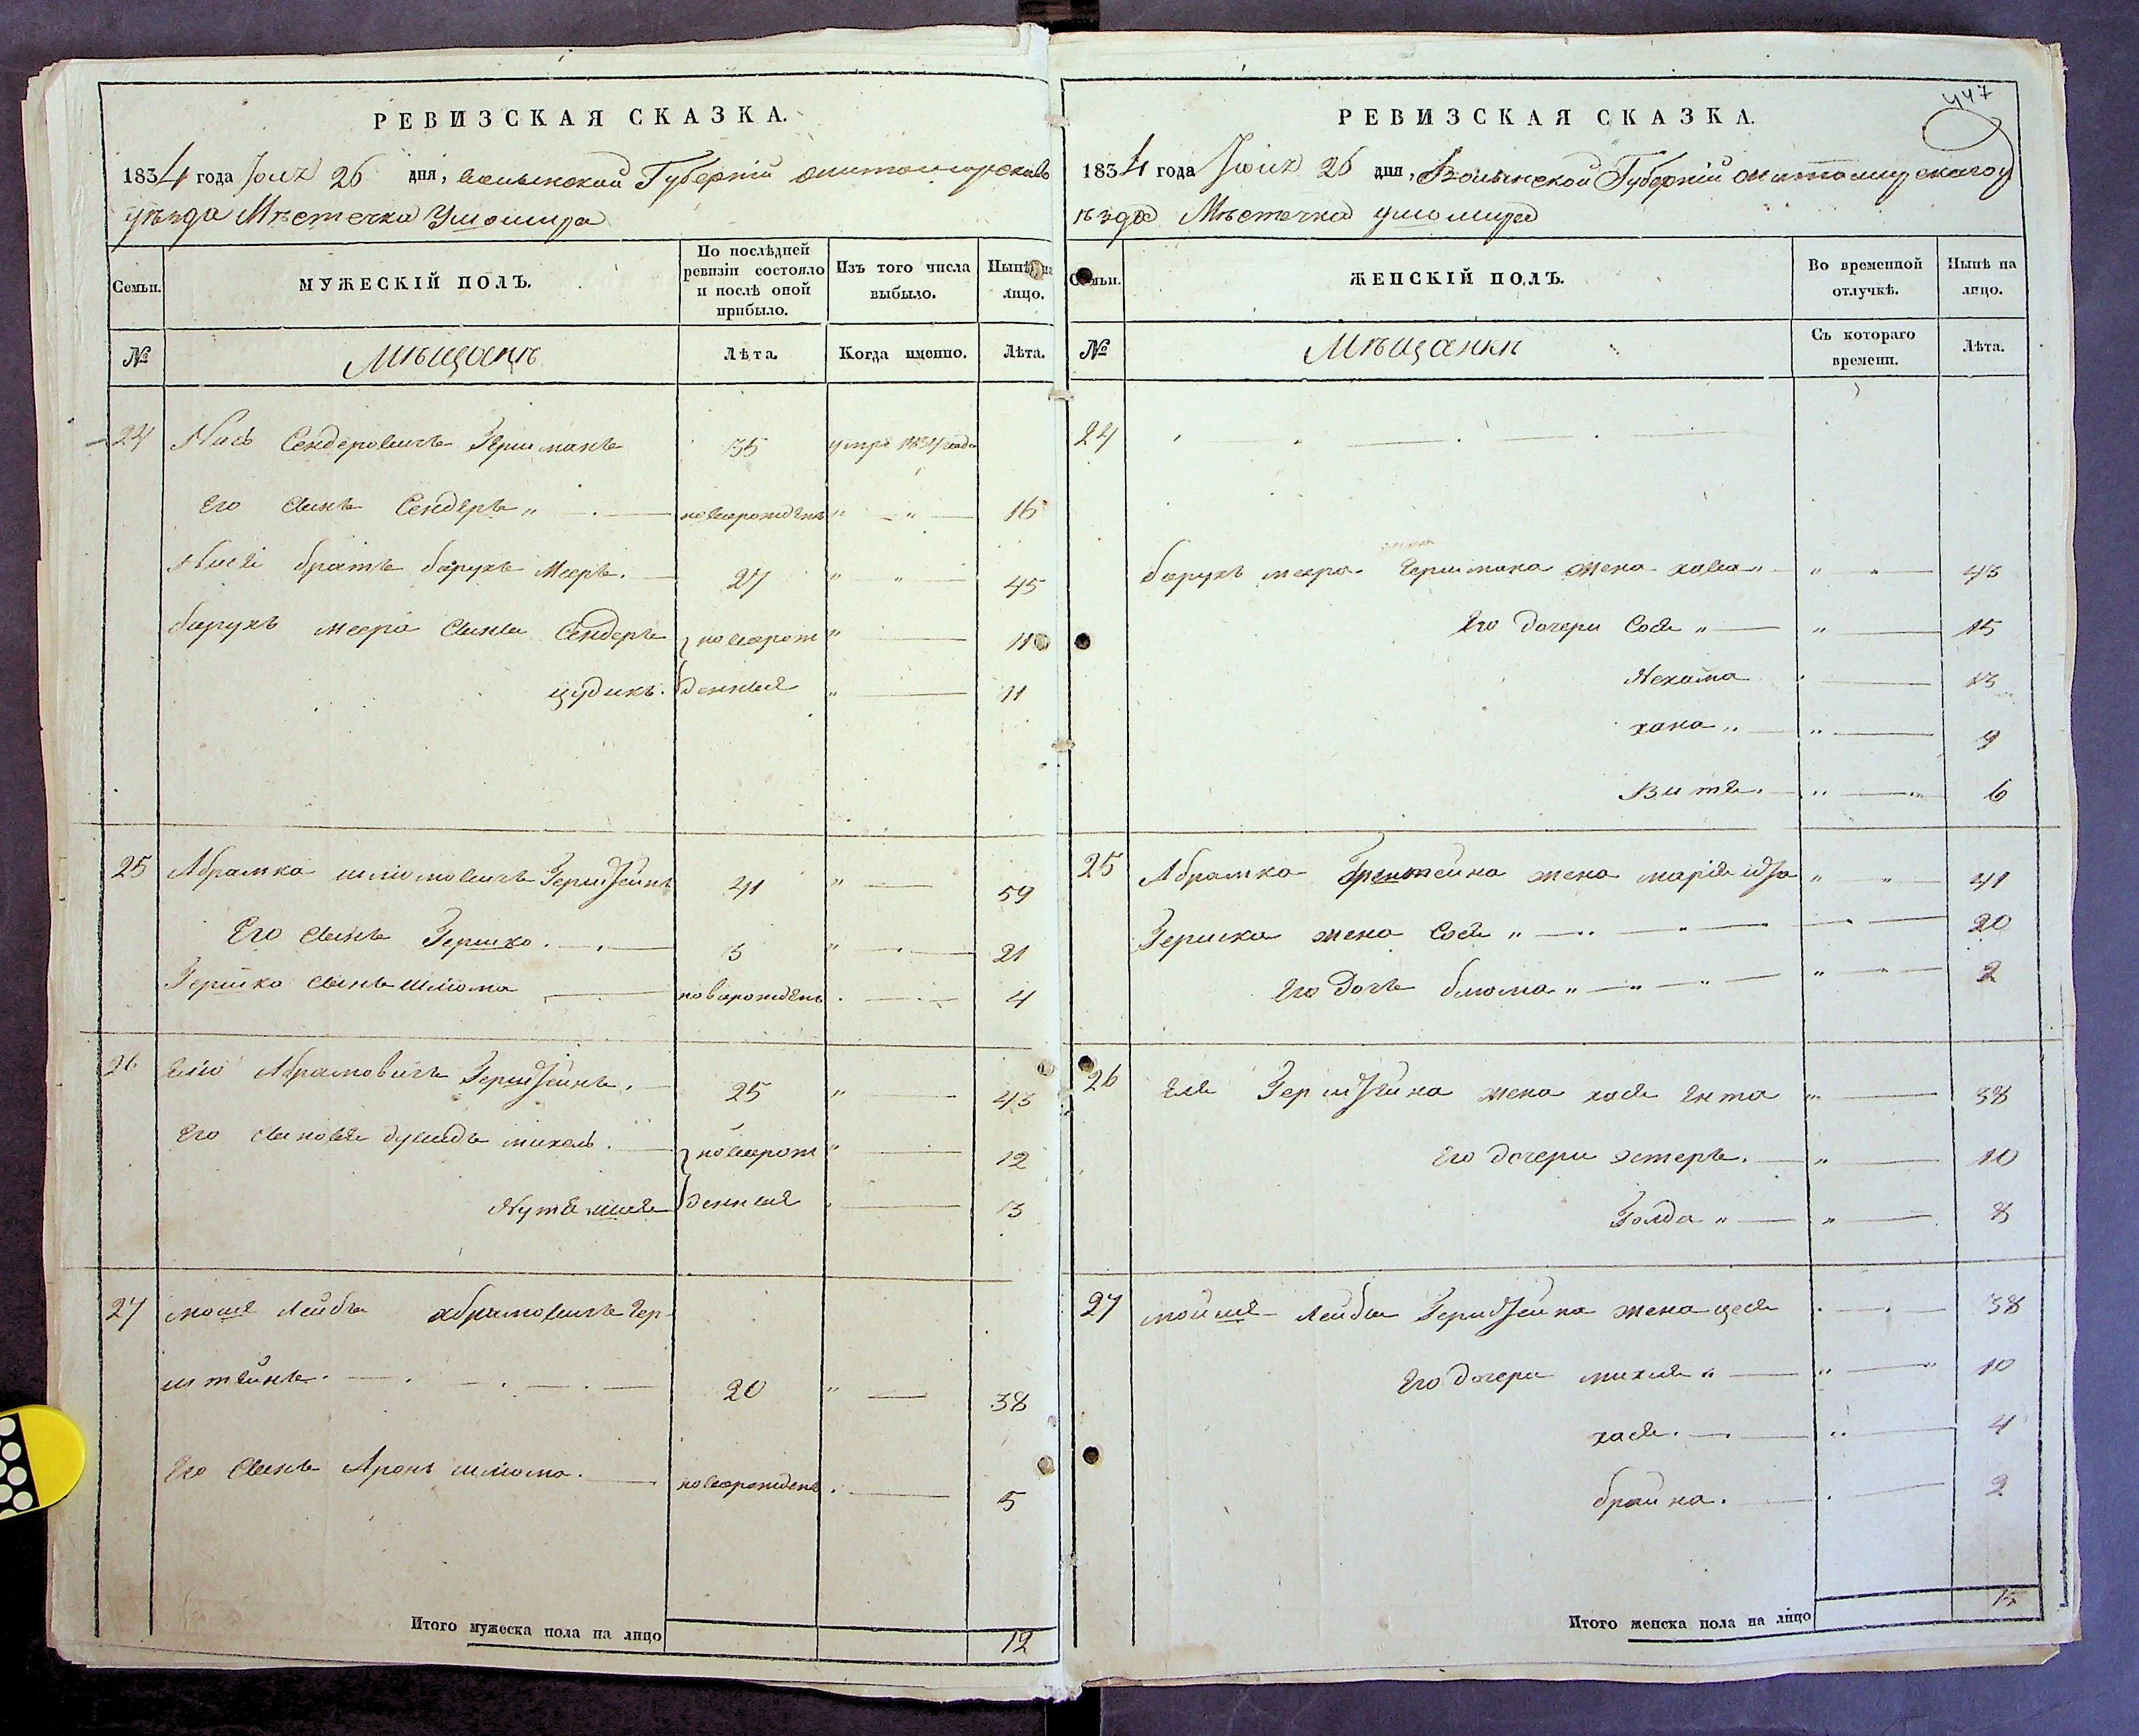 РЕВИЗСКАЯ СКАЗКА.
1834 года Юля 26 дня, волынской Губерніи житомирскаго
уѣзда Мѣстечка Ушомира
Семьи.
МУЖЕСКІЙ ПОЛЪ.
По послѣдней ревизіи состояло и послѣ оной прибыло.
Изъ того числа выбыло.
Нынѣ на лицо.
№
Мѣщанѣ
Лѣта.
Когда именно.
Лѣта.
24 Нись Сендеровичъ Гершманъ 35 умре 1834 года
Его сынъ Сендеръ „ новорожденъ „ „ 16
Нися братъ барухъ Мееръ. 27 „ „ 45
барухъ меера сынъ Сендеръ новорож „ 11
цудикъ. денныя „ 11
25 Абрамка шлiомовичъ Герштейнъ 41 „ 59
Его сынъ Гершко. 3 „ 21
Гершка сынъ шлiома новорожденъ 4
26 Елiо Абрамовичъ Герштейнъ. 25 „ 43
Его сыновья дувидъ михель. новорож „ 12
Нута денныя 3
27 моше Лейбъ абрамовичъ Гер
штейнъ. 20 „ 38
Его сынъ Аронъ шлiома. новорожденъ 5
Итого мужеска пола на лицо 12
447
РЕВИЗСКАЯ СКАЗКА.
1834 года Юля 26 дня, Волынской Губерніи житомирскаго у
ѣзда Мѣстечка ушомира
Семьи.
ЖЕНСКІЙ ПОЛЪ.
Во временной отлучкѣ.
Нынѣ на лицо.
№
Мѣщанки
Съ котораго времени.
Лѣта.
24
барухъ меера Гершмана жена хава „ „ „ 43
Его дочери Сося „ „ 15
Нехама 13
хана „ „ 9
Витя. „ 6
25 Абрамка Герштейна жена марія „ „ 41
Гершка жена Сося „ 20
Его дочъ блюма „ „ 2
26 Еля Герштейна жена хася Ента „ 38
Его дочери эстеръ. „ 10
Голда „ „ 8
27 мойше Лейбы Герштейна жена цеся 38
Его дочери михля „ „ 10
хася. „ 4
брайна. 2
Итого женска пола на лицо 15